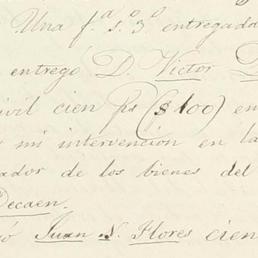 Una f.ª s. 3º entregada
entregó D. Victor
civil cien Ps ($100) en
mi intervencion en la
ador de los bienes del
Decaen.
ó Juan S. Flores cien